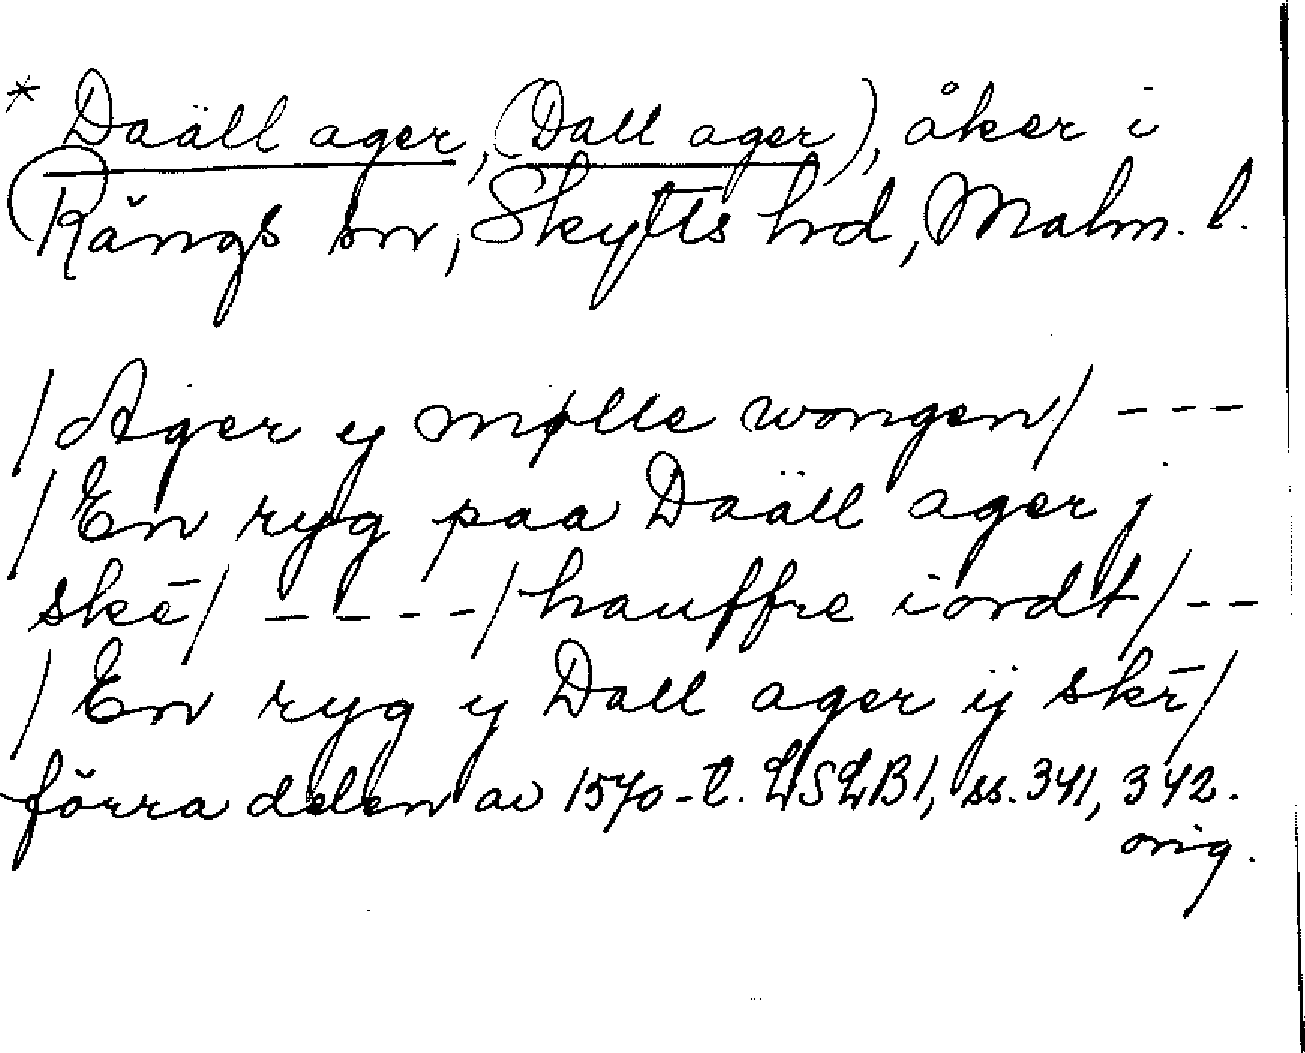 * Daäll ager, (Dall ager), åker i
Rängs sn, Skytts hd, Malm. l.
/Ager y mølle wongen/ ---
/En ryg paa Daäll ager j
skē/ ----/hauffre iordt/--
/En ryg y Dall ager ij skē/
förra delen av 1570-t. LSLB1, ss. 341, 342.
orig.